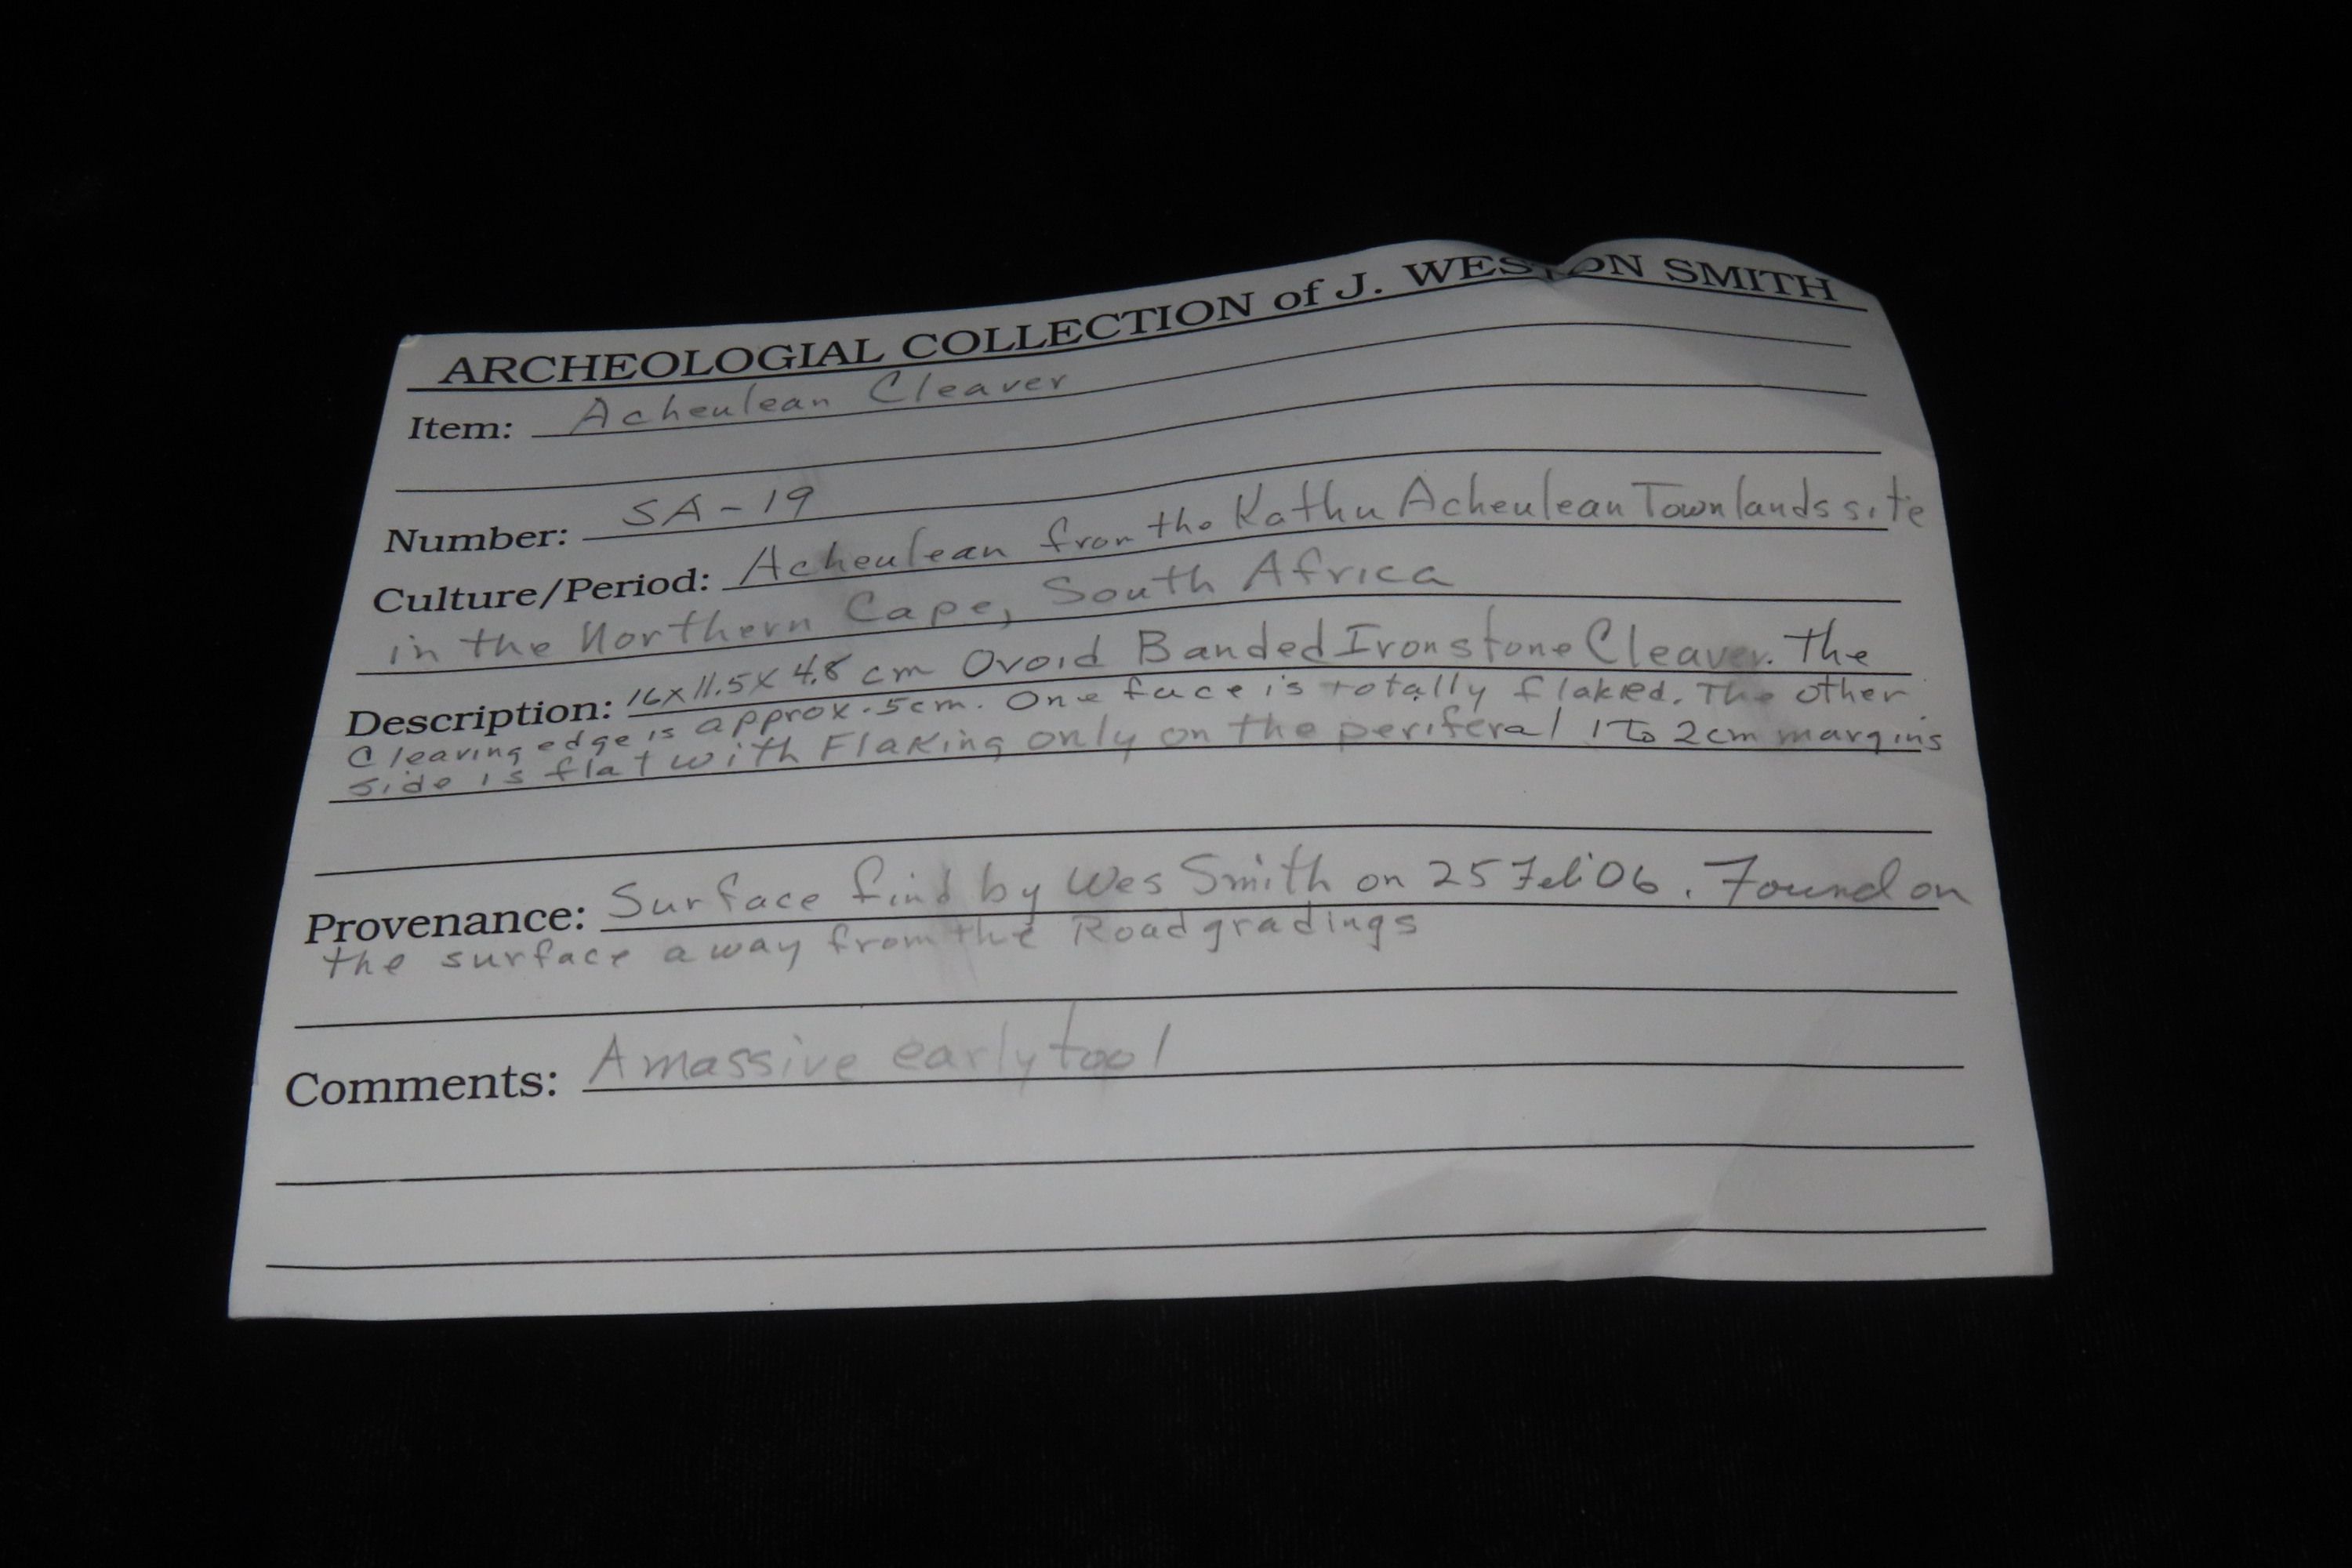 ARCHEOLOGIAL COLLECTION of J. WESTON SMITH
Item: Acheulean Cleaver
Number: SA-19
Culture/Period: Acheulean from the Kathu Acheulean Townlands site
in the Northern Cape, South Africa
Description: 16x11.5x4.8 cm Ovoid Banded Ironstone Cleaver. The
Cleaving edge is approx. 5cm. One face is totally flaked. The other
side is flat with Flaking only on the periferal 1 To 2cm margins
Provenance: Surface find by Wes Smith on 25 Feb '06. Found on
the surface away from the Road gradings
Comments: A massive early tool